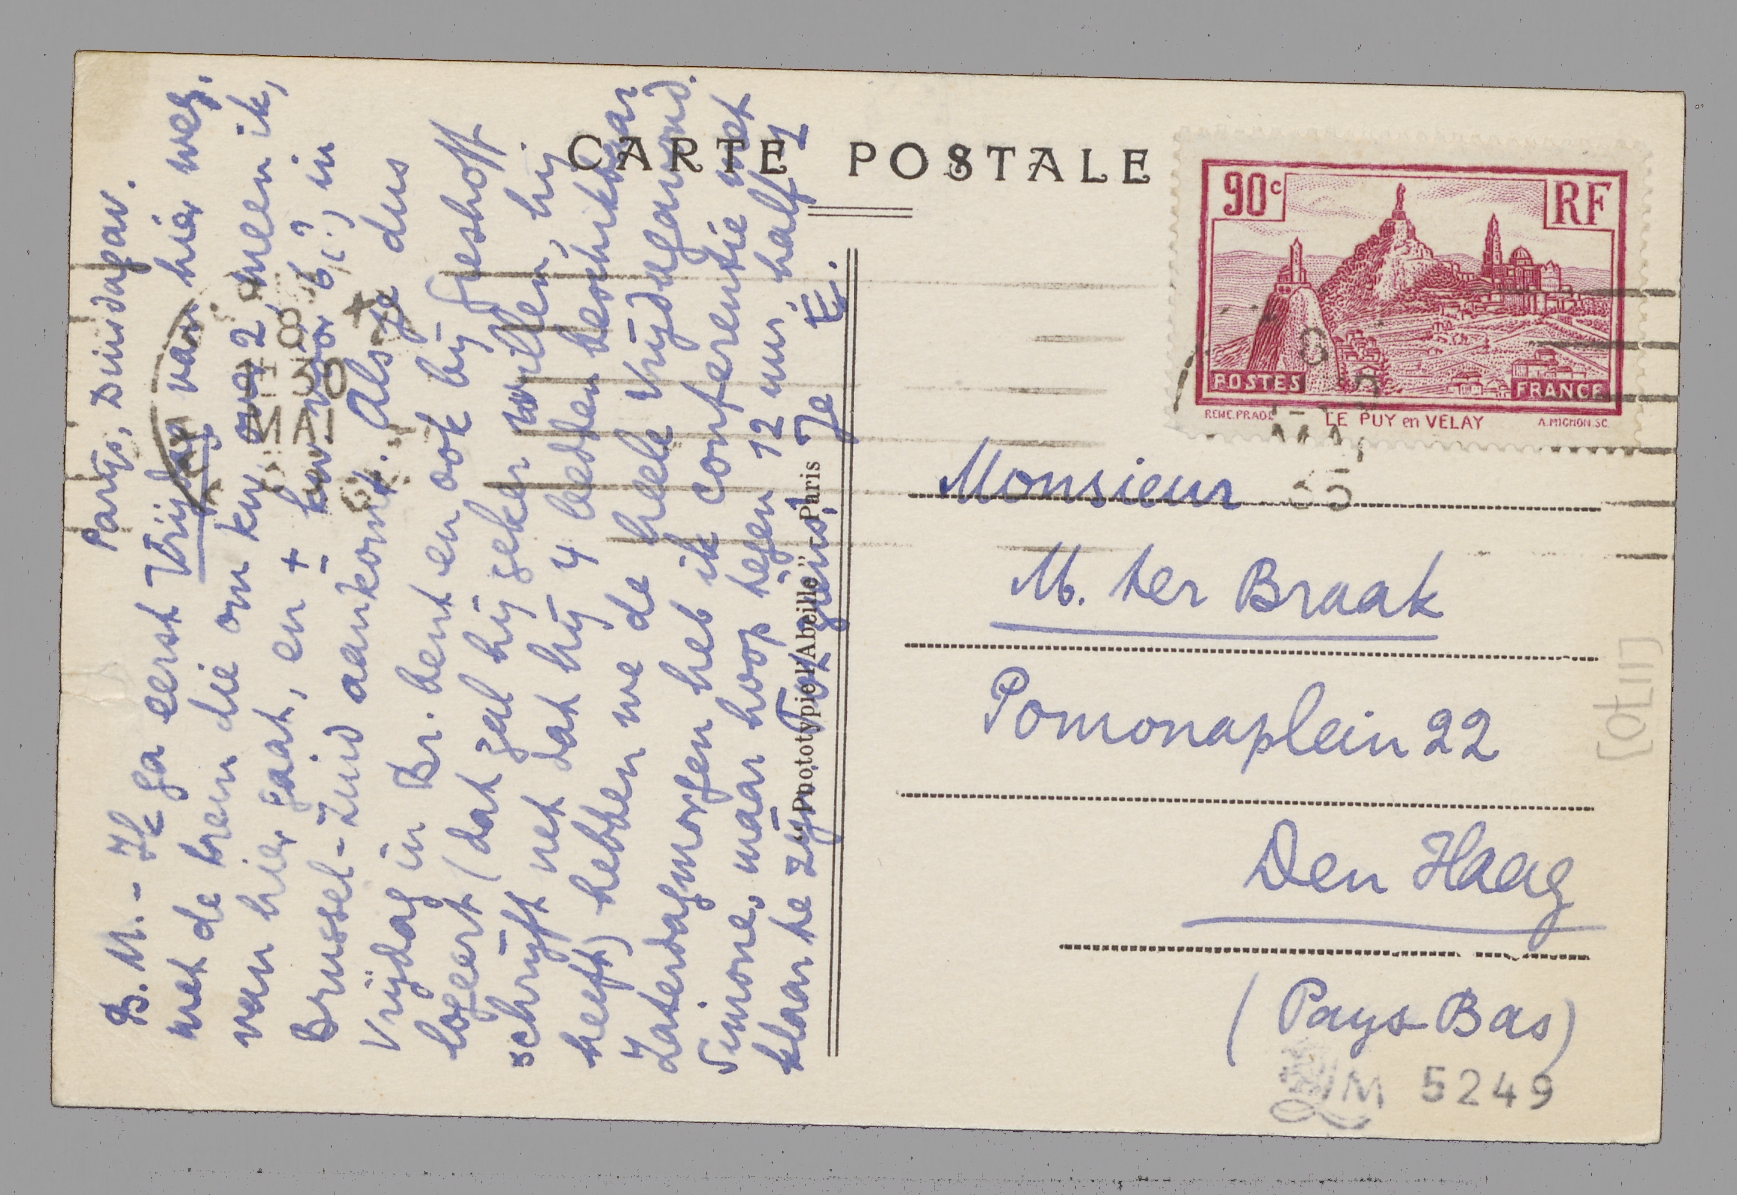 CARTE POSTALE
Parijs, Dinsdagav.
B. M. - Ik ga eerst Vrijdag van hier weg.
met de trein die om kw. over 2, meen ik,
van hier gaat, en ± kw. voor 6(?) in
Brussel-Zuid aankomt. Als je dus
Vrijdag in Br. bent en ook bij Greshoff
logeert (dat zal hij zeker willen, hij
schrijft net dat hij 4 bedden beschikbaar
heeft) hebben we de heele Vrijdagavond.
Zaterdagmorgen heb ik conferentie met
Simone, maar hoop tegen 12 uur, half 1
klaar te zijn. Tot ziens! Je E.
"Phototypie l'Abeille", Paris
90c RF
POSTES FRANCE
LE PUY en VELAY
A.MIGNON.SC.
18 30
MAI
Monsieur
M. ter Braak
Pomonaplein 22
Den Haag
(Pays-Bas)
LM 5249